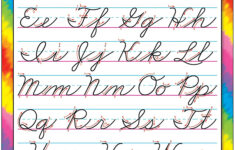 Ee Ff Gg Hh
Ii Jj Kk Ll
Mm Nn Oo Pp
Qq Rr Ss Tt